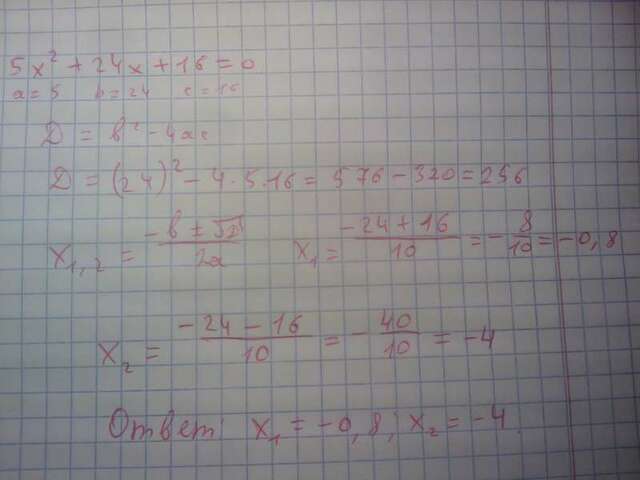 5x² + 24x + 16 = 0
a = 5 b = 24 c = 16
D = b² - 4ac
D = (24)² - 4·5·16 = 576 - 320 = 256
x₁,₂ = (-b ± √D)/2a x₁ = (-24 + 16)/10 = -8/10 = -0,8
x₂ = (-24 - 16)/10 = -40/10 = -4
Ответ: x₁ = -0,8; x₂ = -4.